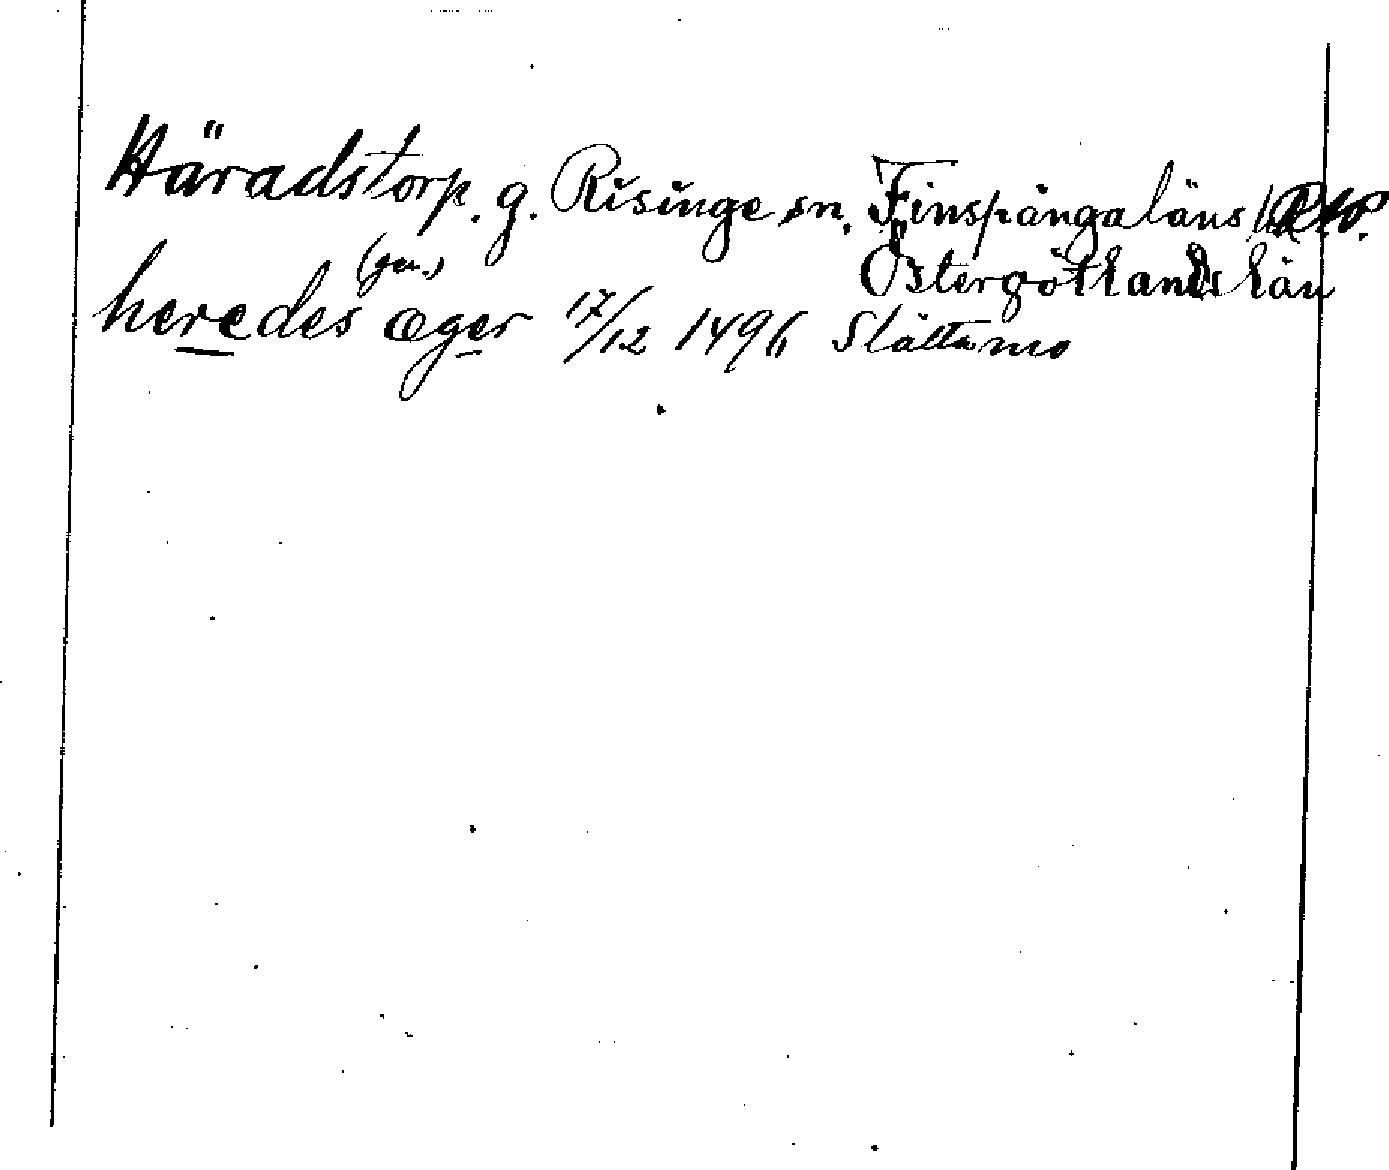 Häradstorp. g. Risinge sn. Finspångaläns
Östergötlands län
(gen.)
heredes æger 17/12 1496 Slättamo